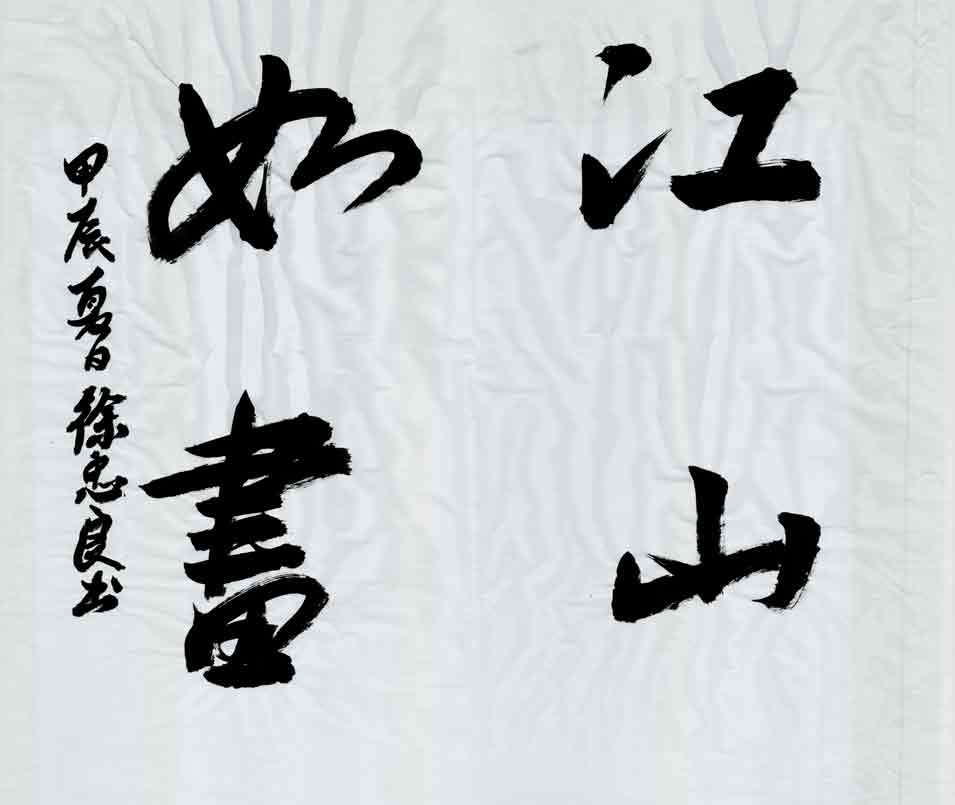 江山
如畫
甲辰夏日徐忠良书